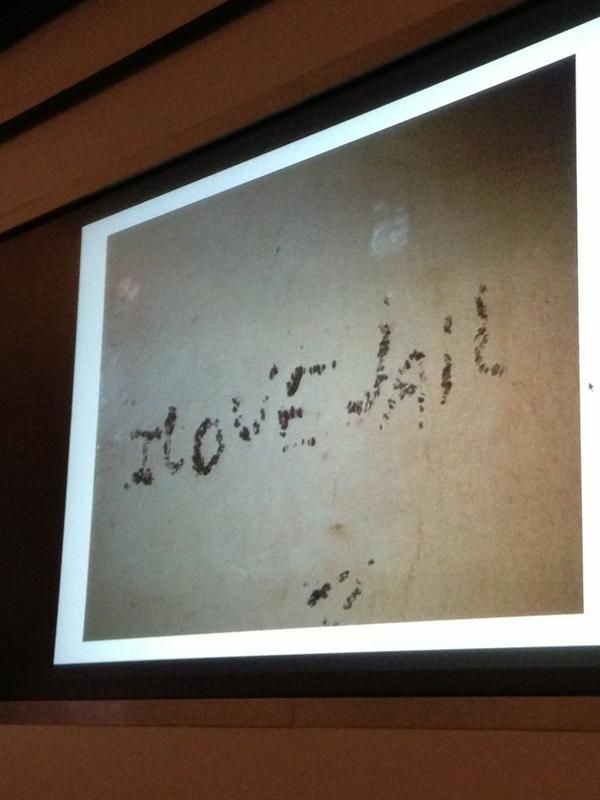 I LOVE JAIL